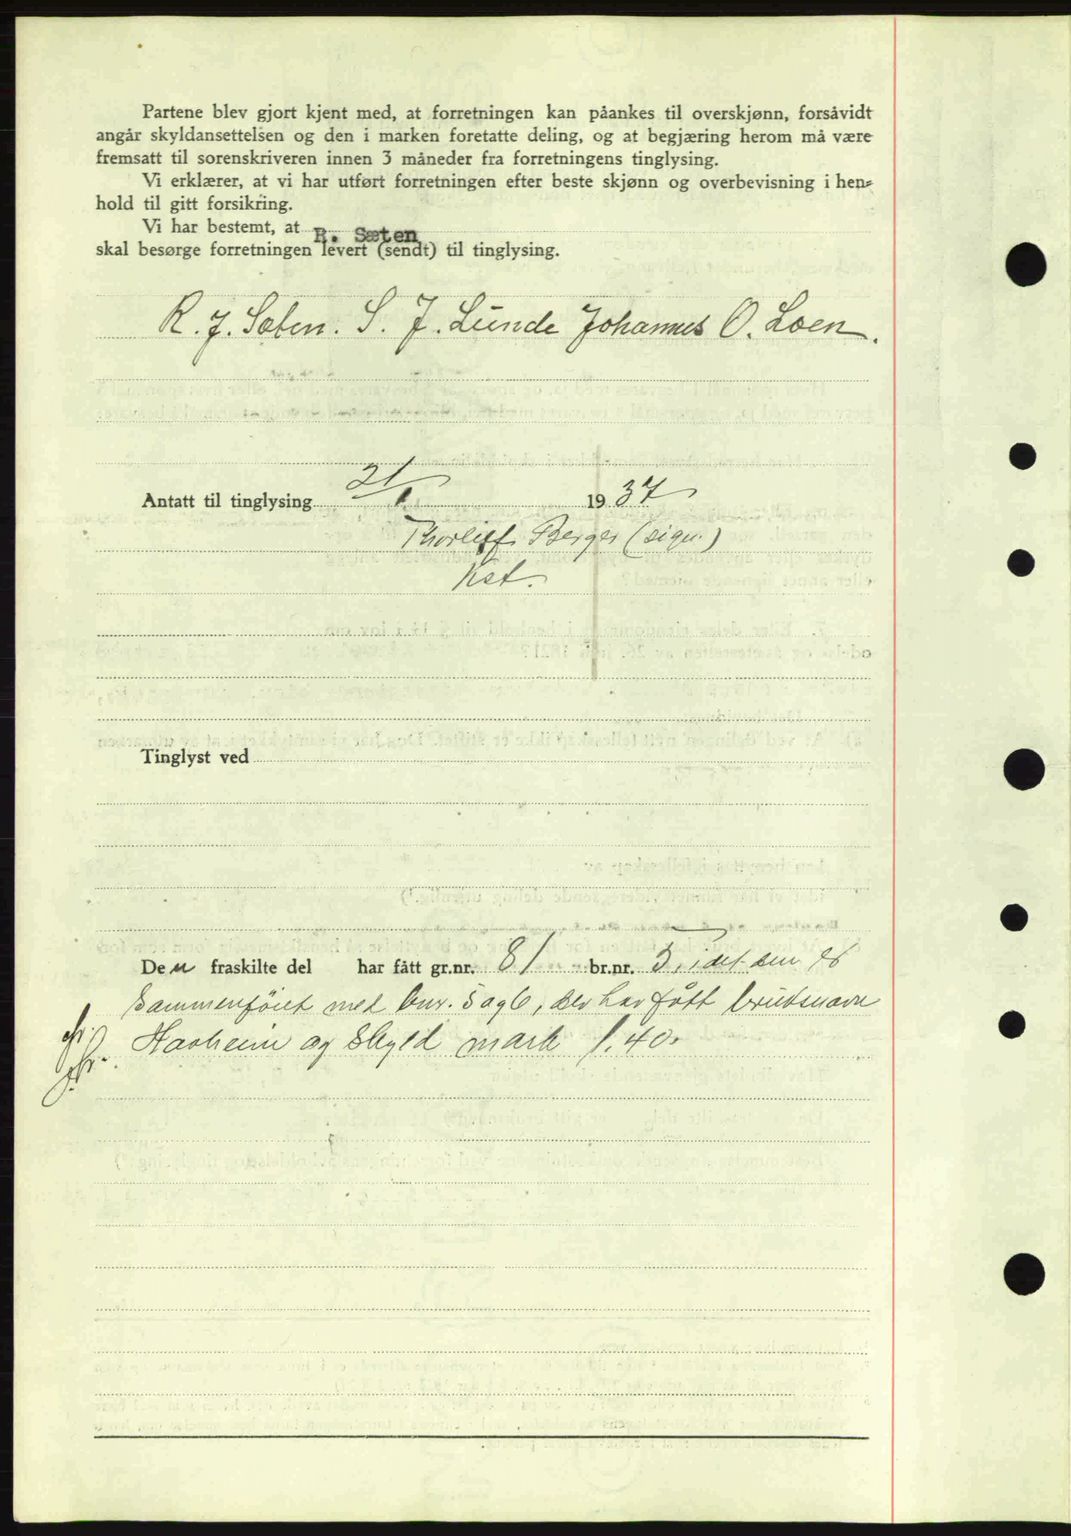 Partene blev gjort kjent med, at forretningen kan påankes til overskjønn, forsåvidt
angår skyldansettelsen og den i marken foretatte deling, og at begjæring herom må være
fremsatt til sorenskriveren innen 3 måneder fra forretningens tinglysing.
Vi erklærer, at vi har utført forretningen efter beste skjønn og overbevisning i hen-
hold til gitt forsikring.
Vi har bestemt, at R. Sæten
skal besørge forretningen levert (sendt) til tinglysing.
R. J. Sæten. S. J. Lunde Johannes O. Loen.
Antatt til tinglysing 21/1 1937
Thorleif Berger (sign.)
Kst.
Tinglyst ved
Den fraskilte del har fått gr.nr. 81 br.nr. 5, idet den er
sammenføiet med bnr. 5 og 6, der har fått bruksnavn
Havheim og skyld mark 1.40.